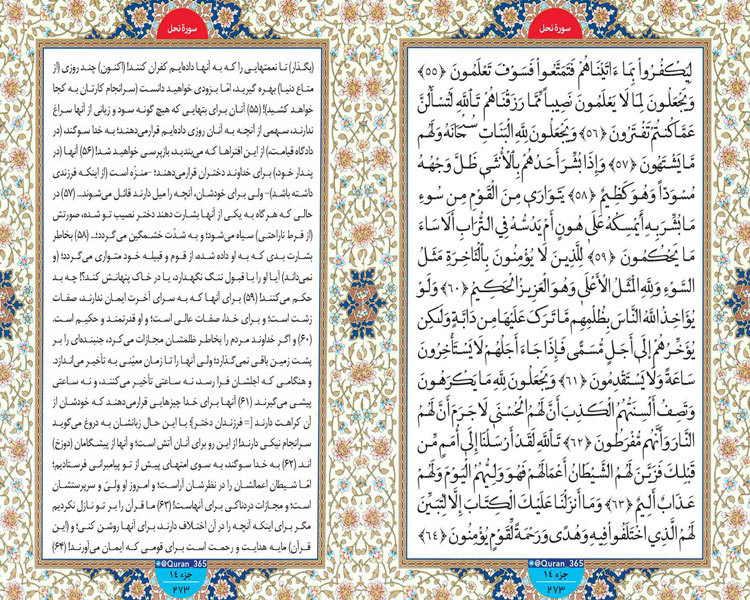 سورهٔ نحل
لِيَكْفُرُوا۟ بِمَآ ءَاتَيْنَٰهُمْ فَتَمَتَّعُوا۟ فَسَوْفَ تَعْلَمُونَ ﴿۵۵﴾
وَيَجْعَلُونَ لِمَا لَا يَعْلَمُونَ نَصِيبًا مِّمَّا رَزَقْنَٰهُمْ تَٱللَّهِ لَتُسْـَٔلُنَّ
عَمَّا كُنتُمْ تَفْتَرُونَ ﴿۵۶﴾ وَيَجْعَلُونَ لِلَّهِ ٱلْبَنَٰتِ سُبْحَٰنَهُۥ وَلَهُم
مَّا يَشْتَهُونَ ﴿۵۷﴾ وَإِذَا بُشِّرَ أَحَدُهُم بِٱلْأُنثَىٰ ظَلَّ وَجْهُهُۥ
مُسْوَدًّا وَهُوَ كَظِيمٌ ﴿۵۸﴾ يَتَوَٰرَىٰ مِنَ ٱلْقَوْمِ مِن سُوٓءِ
مَا بُشِّرَ بِهِۦٓ أَيُمْسِكُهُۥ عَلَىٰ هُونٍ أَمْ يَدُسُّهُۥ فِى ٱلتُّرَابِ أَلَا سَآءَ
مَا يَحْكُمُونَ ﴿۵۹﴾ لِلَّذِينَ لَا يُؤْمِنُونَ بِٱلْءَاخِرَةِ مَثَلُ
ٱلسَّوْءِ وَلِلَّهِ ٱلْمَثَلُ ٱلْأَعْلَىٰ وَهُوَ ٱلْعَزِيزُ ٱلْحَكِيمُ ﴿۶۰﴾ وَلَوْ
يُؤَاخِذُ ٱللَّهُ ٱلنَّاسَ بِظُلْمِهِم مَّا تَرَكَ عَلَيْهَا مِن دَآبَّةٍ وَلَٰكِن
يُؤَخِّرُهُمْ إِلَىٰٓ أَجَلٍ مُّسَمًّى فَإِذَا جَآءَ أَجَلُهُمْ لَا يَسْتَـْٔخِرُونَ
سَاعَةً وَلَا يَسْتَقْدِمُونَ ﴿۶۱﴾ وَيَجْعَلُونَ لِلَّهِ مَا يَكْرَهُونَ
وَتَصِفُ أَلْسِنَتُهُمُ ٱلْكَذِبَ أَنَّ لَهُمُ ٱلْحُسْنَىٰ لَا جَرَمَ أَنَّ لَهُمُ
ٱلنَّارَ وَأَنَّهُم مُّفْرَطُونَ ﴿۶۲﴾ تَٱللَّهِ لَقَدْ أَرْسَلْنَآ إِلَىٰٓ أُمَمٍ مِّن
قَبْلِكَ فَزَيَّنَ لَهُمُ ٱلشَّيْطَٰنُ أَعْمَٰلَهُمْ فَهُوَ وَلِيُّهُمُ ٱلْيَوْمَ وَلَهُمْ
عَذَابٌ أَلِيمٌ ﴿۶۳﴾ وَمَآ أَنزَلْنَا عَلَيْكَ ٱلْكِتَٰبَ إِلَّا لِتُبَيِّنَ
لَهُمُ ٱلَّذِى ٱخْتَلَفُوا۟ فِيهِ وَهُدًى وَرَحْمَةً لِّقَوْمٍ يُؤْمِنُونَ ﴿۶۴﴾
@Quran_365
جزء ۱٤
۲۷۳
سورهٔ نحل
(بگذار) تا نعمتهایی را که به آنها داده‌ایم کفران کنند! (اکنون) چند روزی (از
متاع دنیا) بهره گیرید، امّا بزودی خواهید دانست (سرانجام کارتان به کجا
خواهد کشید)! (۵۵) آنان برای بتهایی که هیچ گونه سود و زیانی از آنها سراغ
ندارند، سهمی از آنچه به آنان روزی داده‌ایم قرارمی‌دهند؛ به خدا سوگند، (در
دادگاه قیامت،) از این افتراها که می‌بندید، بازپرسی خواهید شد! (۵۶) آنها (در
پندار خود،) برای خداوند دختران قرارمی‌دهند؛ -منزّه است (از اینکه فرزندی
داشته باشد)- ولی برای خودشان، آنچه را میل دارند قائل می‌شوند... (۵۷) در
حالی که هرگاه به یکی از آنها بشارت دهند دختر نصیب تو شده، صورتش
(از فرط ناراحتی) سیاه می‌شود؛ و به شدّت خشمگین می‌گردد؛... (۵۸) بخاطر
بشارت بدی که به او داده شده، از قوم و قبیله خود متواری می‌گردد؛ (و
نمی‌داند) آیا او را با قبول ننگ نگهدارد، یا در خاک پنهانش کند؟! چه بد
حکم می‌کنند! (۵۹) برای آنها که به سرای آخرت ایمان ندارند، صفات
زشت است؛ و برای خدا، صفات عالی است؛ و او قدرتمند و حکیم است.
(۶۰) و اگر خداوند مردم را بخاطر ظلمشان مجازات می‌کرد، جنبنده‌ای را بر
پشت زمین باقی نمی‌گذارد؛ ولی آنها را تا زمان معیّنی به تأخیر می‌اندازد.
و هنگامی که اجلشان فرا رسد، نه ساعتی تأخیر می‌کنند، و نه ساعتی
پیشی می‌گیرند. (۶۱) آنها برای خدا چیزهایی قرارمی‌دهند که خودشان از
آن کراهت دارند [= فرزندان دختر]؛ با این حال زبانشان به دروغ می‌گوید
سرانجام نیکی دارند! از این رو برای آنان آتش است؛ و آنها از پیشگامان (دوزخ)
اند (۶۲) به خدا سوگند، به سوی امتهای پیش از تو پیامبرانی فرستادیم؛
امّا شیطان اعمالشان را در نظرشان آراست؛ و امروز او ولیّ و سرپرستشان
است؛ و مجازات دردناکی برای آنهاست! (۶۳) ما قرآن را بر تو نازل نکردیم
مگر برای اینکه آنچه را در آن اختلاف دارند، برای آنها روشن کنی؛ و (این
قرآن) مایه هدایت و رحمت است برای قومی که ایمان می‌آورند! (۶۴)
@Quran_365
جزء ۱٤
۲۷۳